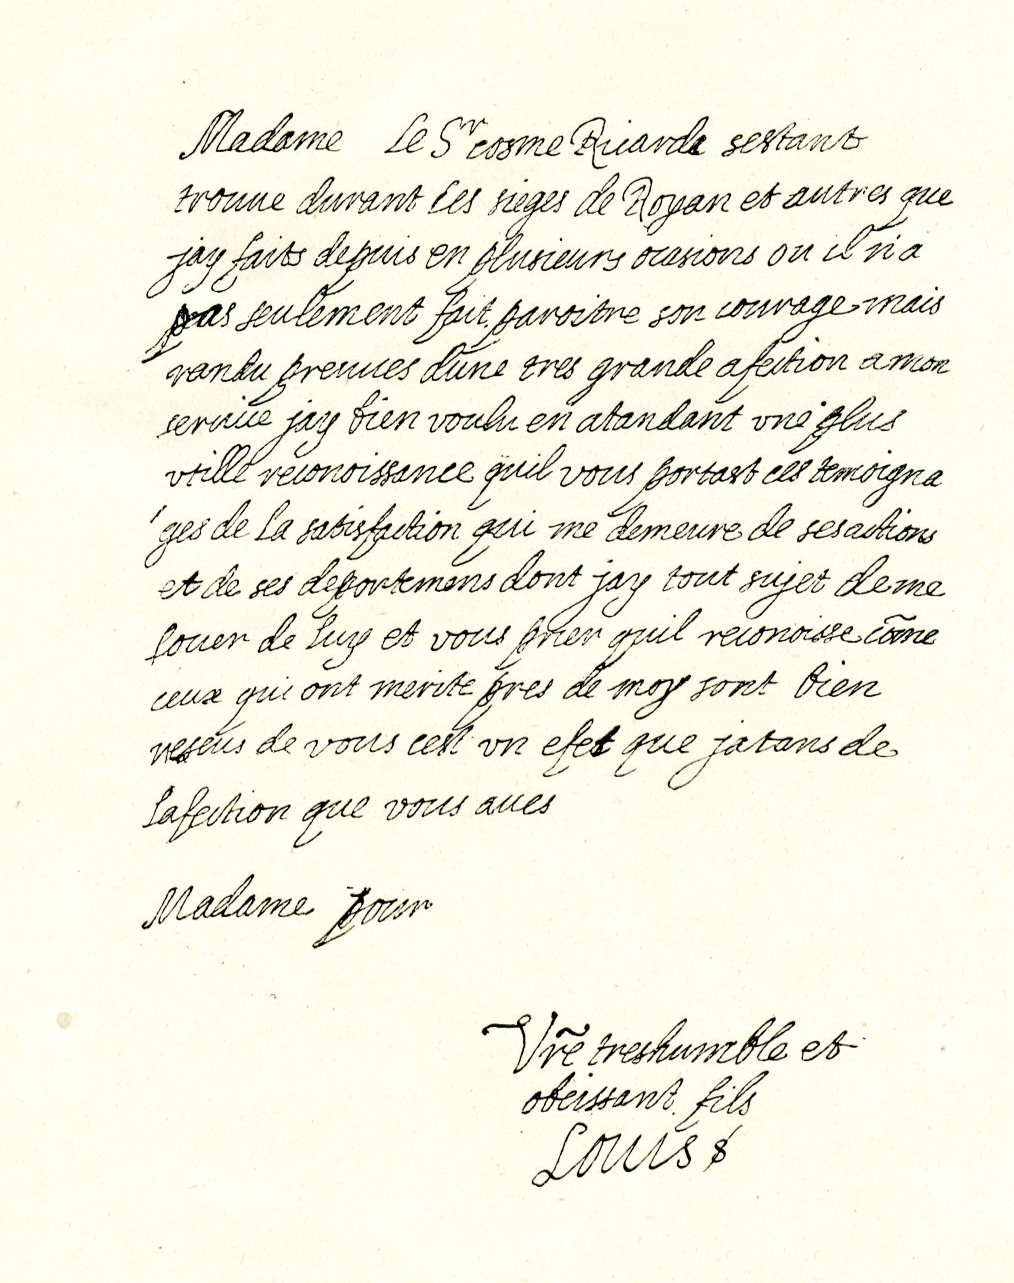 Madame Le Sr cosme Ricarda sestant
trouue durant les sieges de Royan et autres que
jay faits depuis en plusieurs ocasions ou il n'a
pas seulement fait paroitre son courage mais
randu preuues dune tres grande afection a mon
seruice jay bien voulu en atandant vne plus
vtille reconoissance quil vous portast ces temoigna
ges de la satisfaction qui me demeure de ses actions
et de ses deportemens dont jay tout sujet de me
louer de luy et vous prier quil reconoisse cõme
ceux qui ont merite pres de moy sont bien
reseus de vous cest vn efet que jatans de
lafection que vous aues
Madame pour
Vrẽ treshumble et
obeissant fils
Louis